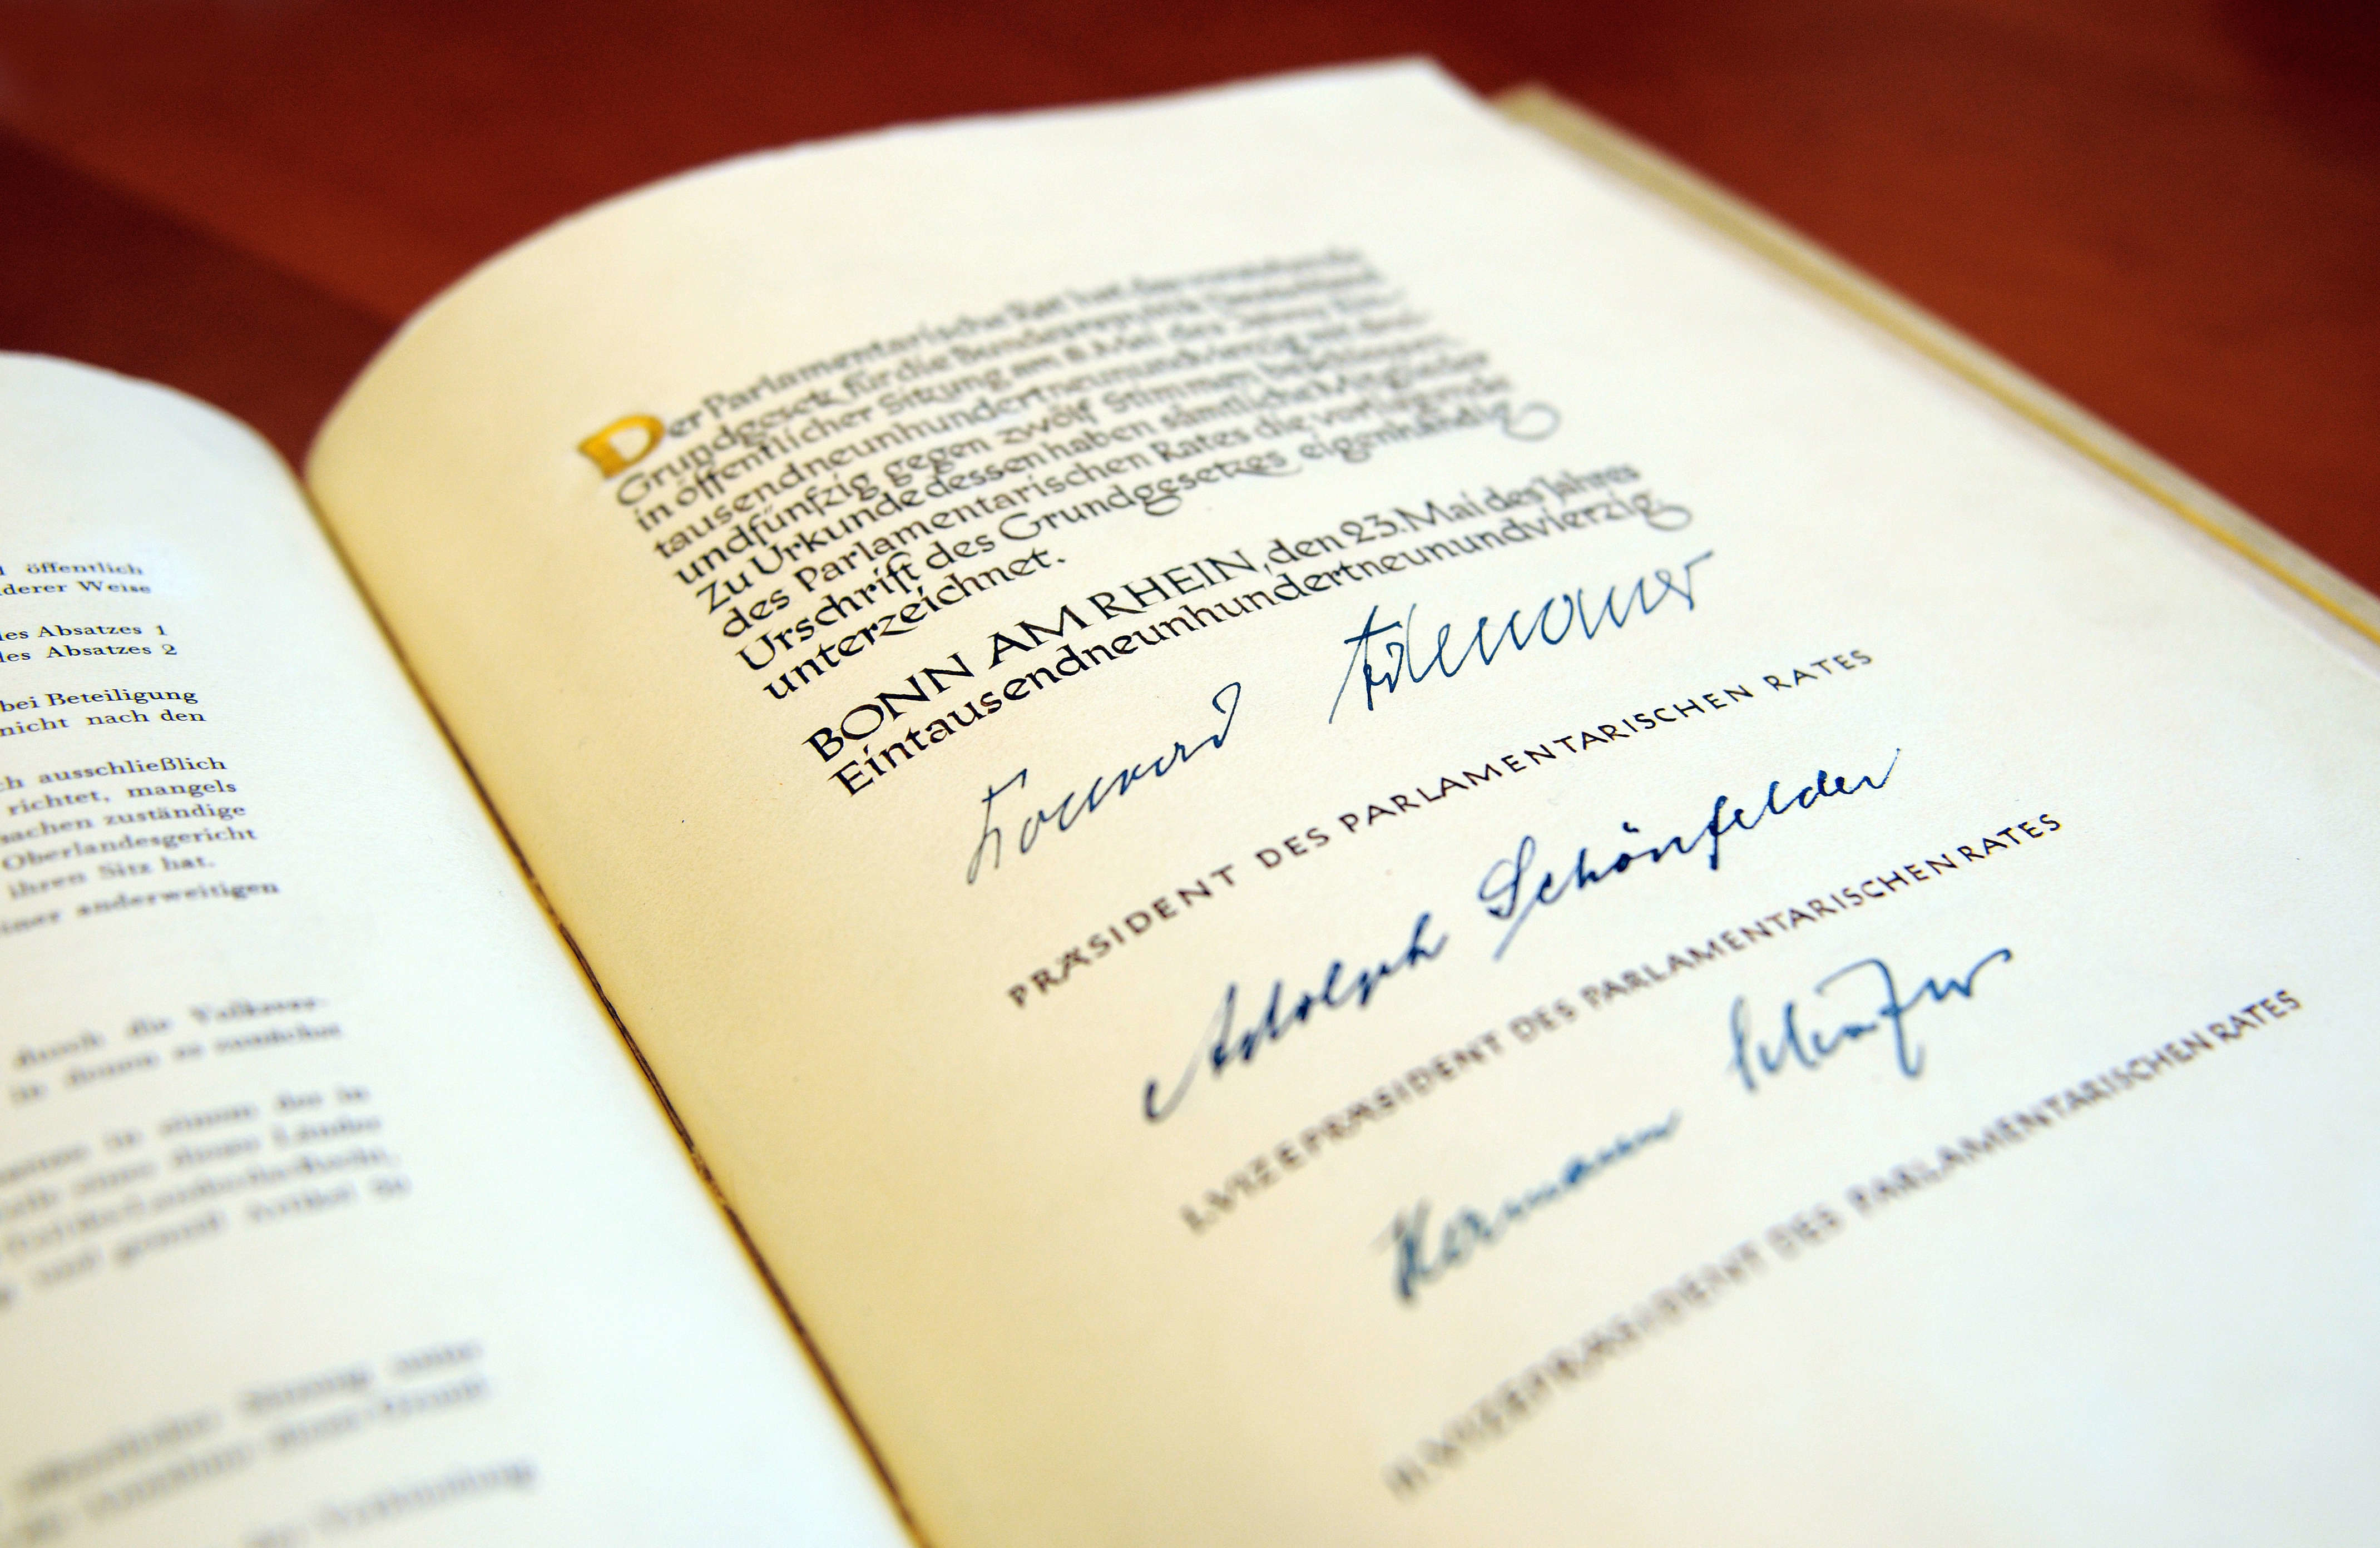 öffentlich
derer Weise
des Absatzes 1
des Absatzes 2
bei Beteiligung
nicht nach den
ausschließlich
richtet, mangels
sachen zuständige
Oberlandesgericht
ihren Sitz hat.
einer anderweitigen
durch die Volksver-
in denen es zunächst
Der Parlamentarische Rat hat das vorstehende
Grundgesetz für die Bundesrepublik Deutschland
in öffentlicher Sitzung am 8. Mai des Jahres Ein-
tausendneunhundertneunundvierzig mit drei-
undfünfzig gegen zwölf Stimmen beschlossen.
Zu Urkunde dessen haben sämtliche Mitglieder
des Parlamentarischen Rates die vorliegende
Urschrift des Grundgesetzes eigenhändig
unterzeichnet.
BONN AM RHEIN, den 23. Mai des Jahres
Eintausendneunhundertneunundvierzig
Konrad Adenauer
PRÄSIDENT DES PARLAMENTARISCHEN RATES
Adolph Schönfelder
I. VIZEPRÄSIDENT DES PARLAMENTARISCHEN RATES
Hermann Schäfer
II. VIZEPRÄSIDENT DES PARLAMENTARISCHEN RATES